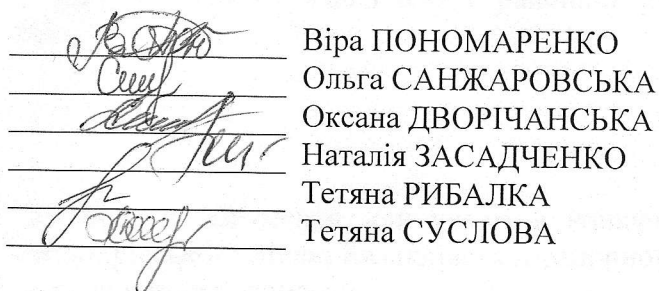 Віра ПОНОМАРЕНКО
Ольга САНЖАРОВСЬКА
Оксана ДВОРІЧАНСЬКА
Наталія ЗАСАДЧЕНКО
Тетяна РИБАЛКА
Тетяна СУСЛОВА